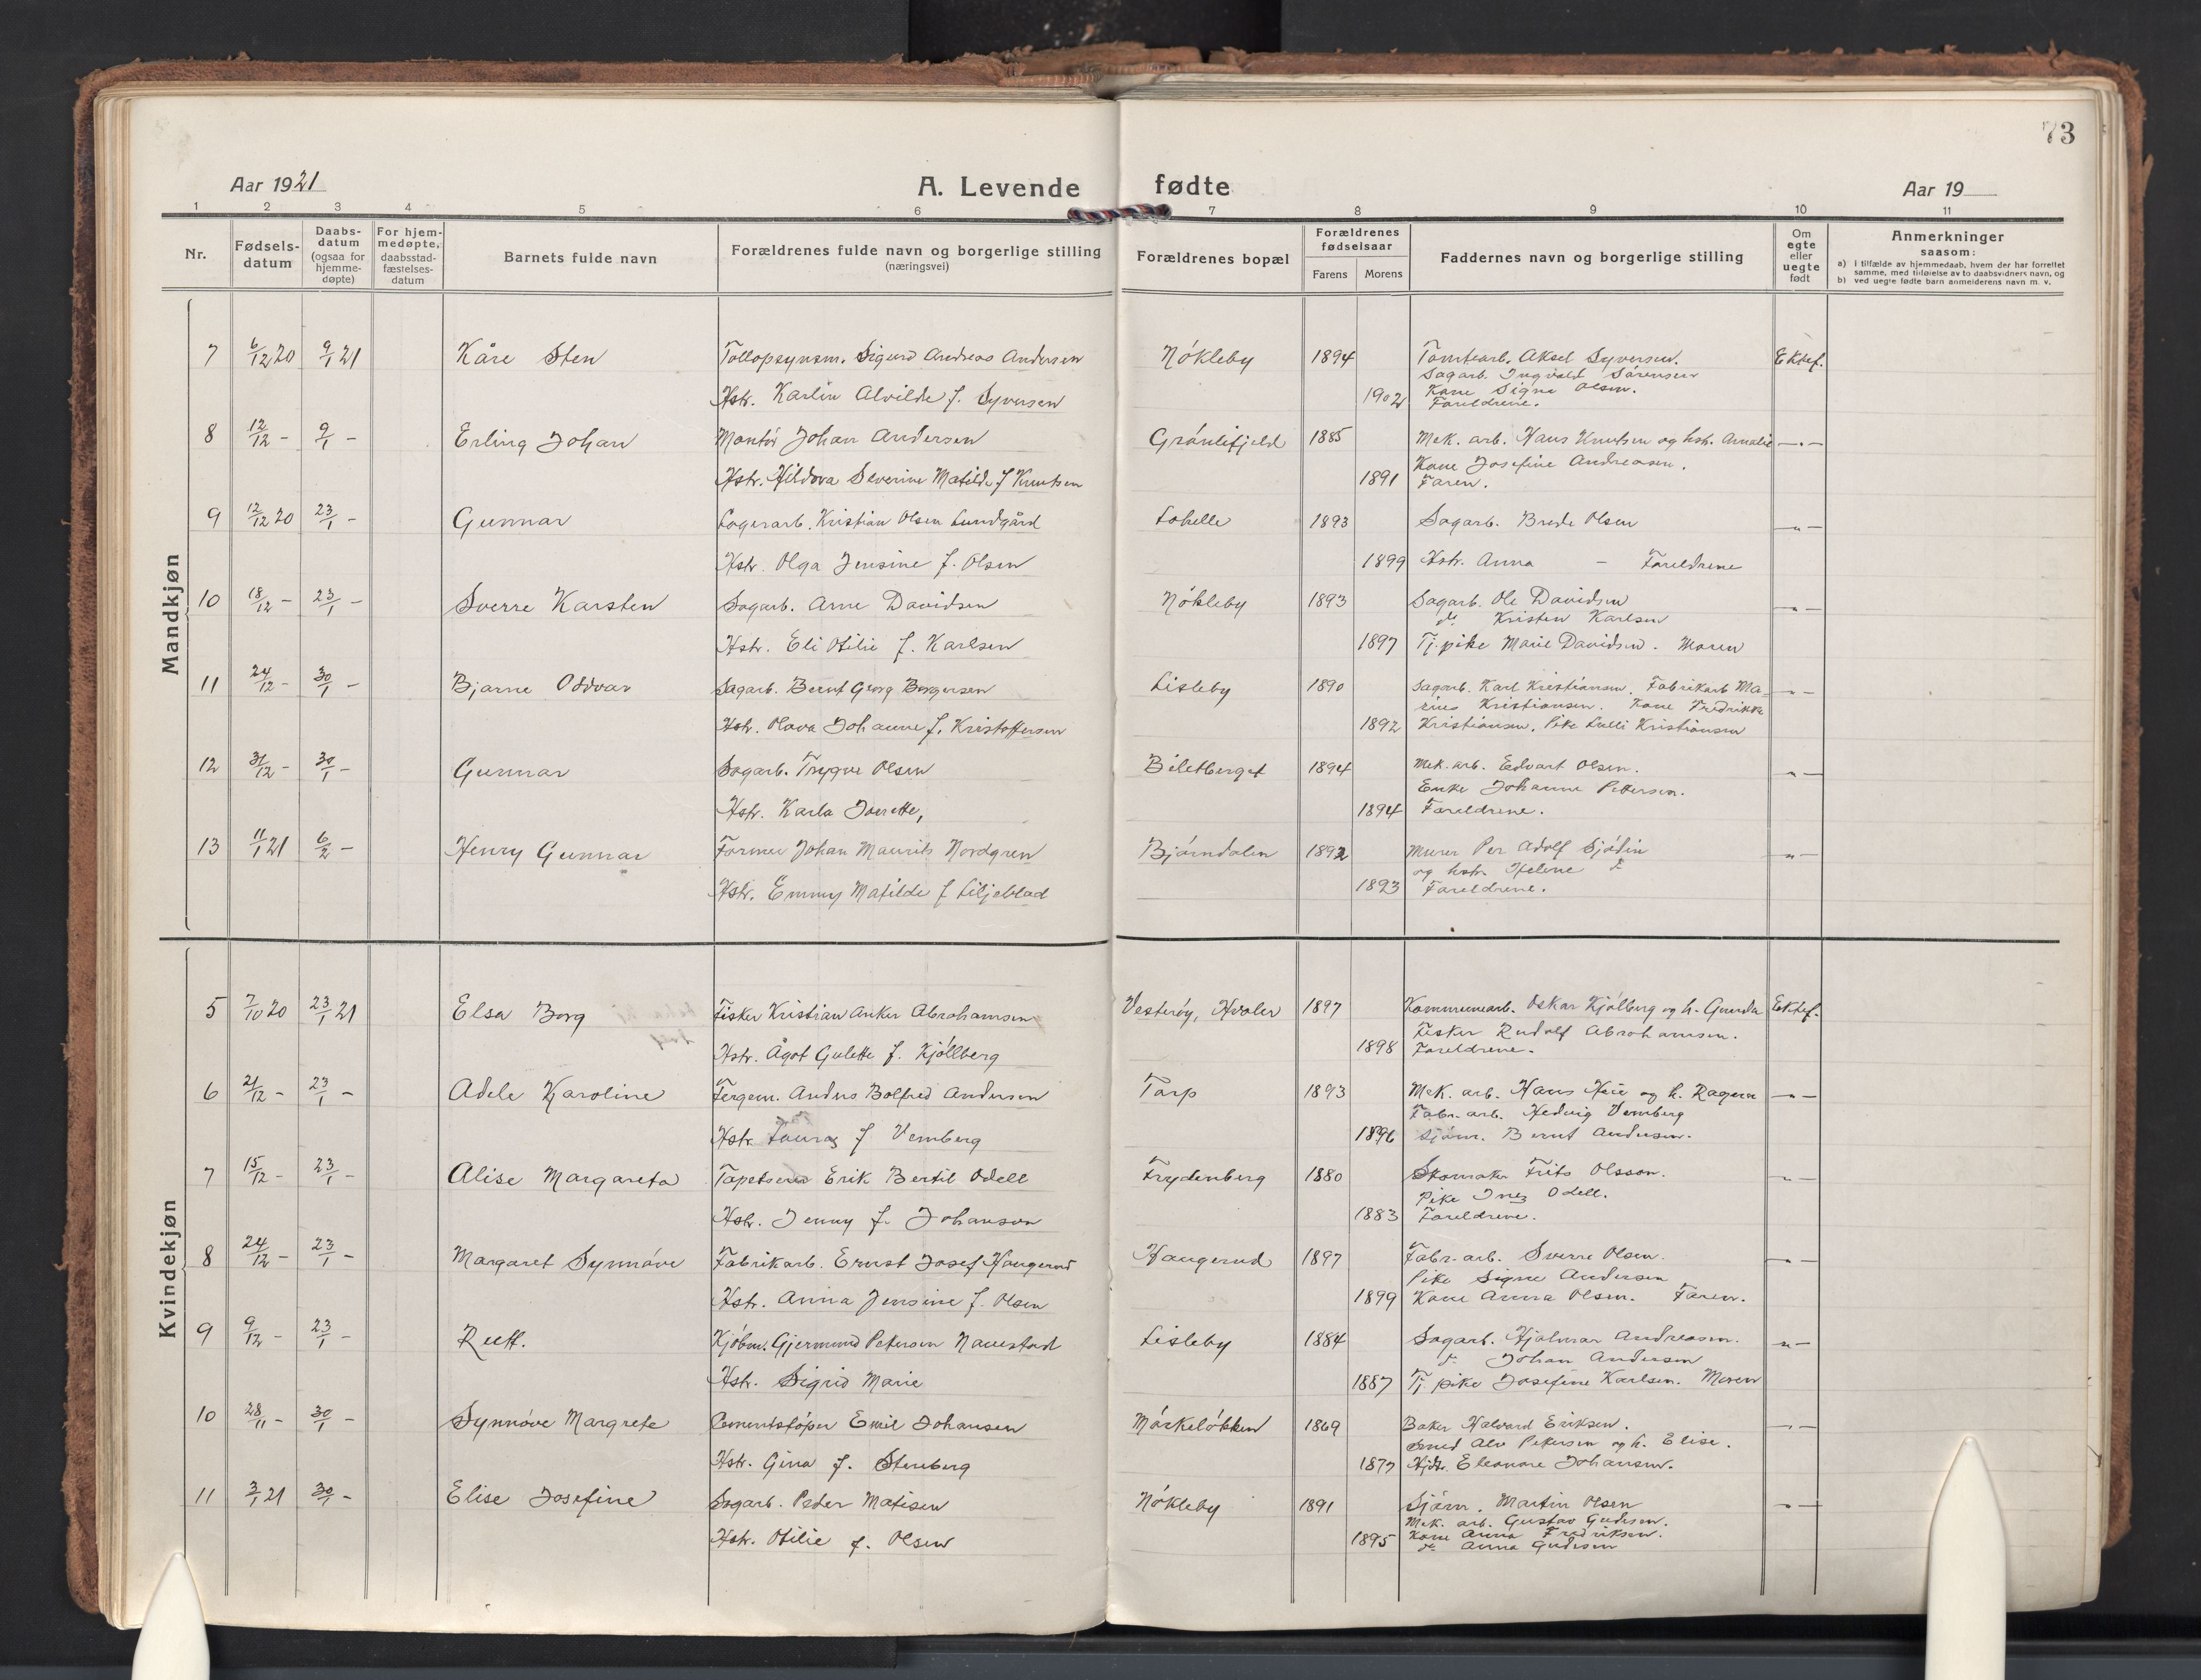 73
Aar 1921
A. Levende fødte
Aar 19
1 2 3 4 5 6 7 8 9 10 11
Nr.
Fødsels-
datum
Daabs-
datum
(ogsaa for
hjemme-
døpte)
For hjem-
medøpte,
daabsstad-
fæstelses-
datum
Barnets fulde navn
Forældrenes fulde navn og borgerlige stilling
(næringsvei)
Forældrenes bopæl
Forældrenes
fødselsaar
Farens Morens
Faddernes navn og borgerlige stilling
Om
egte
eller
uegte
født
Anmerkninger
saasom:
a) i tilfælde av hjemmedaab, hvem der har forrettet
samme, med tilføielse av to daabsvidners navn, og
b) ved uegte fødte barn anmelderens navn m. v.
Mandkjøn
7 6/12 20 9/1 21 Kåre Sten Tollopsynsm. Sigurd Andreas Andersen Nökleby 1894 Tomtearb. Aksel Syversen. Ektef.
Sagarb. Ingvald Sörensen
Hstr. Karlin Alvilde f. Syversen 1902 Kone Signe Olsen.
Foreldrene.
8 12/12 - 9/1 - Erling Johan Montör Johan Andersen Grönlifjeld 1885 Mek. arb. Hans Knutsen og hstr. Amalie -"-
Kone Josefine Andreasen.
Hstr. Hildova Severine Matilde f Knutsen 1891 Faren.
9 12/12 20 23/1 - Gunnar Lagerarb. Kristian Olsen Lundgård Lohelle 1893 Sagarb. Brede Olsen -"-
Hstr. Olga Jensine f. Olsen 1899 Hstr. Anna - Foreldrene
10 18/12 - 23/1 - Sverre Karsten Sagarb. Arne Davidsen Nökleby 1893 Sagarb. Ole Davidsen -"-
do Kristen Karlsen
Hstr. Eli Otilie f. Karlsen 1897 Tj.pike Marie Davidsen. Moren
11 24/12 - 30/1 - Bjarne Oddvar Sagarb. Bernt Georg Borgersen Lisleby 1890 Sagarb. Karl Kristiansen. Fabrikarb Ma- -"-
rius Kristiansen. Kone Fredrikke
Hstr. Olava Johanne f. Kristoffersen 1892 Kristiansen. Pike Lulli Kristiansen
12 31/12 - 30/1 - Gunnar Sagarb. Trygve Olsen Biletberget 1894 Mek. arb. Edvart Olsen. -"-
Enke Johanne Pettersen.
Hstr. Karla Iverette, 1894 Foreldrene.
13 11/1 21 6/2 - Henry Gunnar Former Johan Maurits Nordgren Bjørndalen 1892 Murer Per Adolf Sjödin -"-
og hstr. Helene do
Hstr. Emmy Matilde f Liljeblad 1893 Foreldrene.
Kvindekjøn
5 7/10 20 23/1 21 Elsa Borg Fisker Kristian Anker Abrahamsen Vesteröy, Hvaler 1897 Kommunearb. Oskar Kjölberg og h. Gunda Ektef.
Fisker Rudolf Abrahamsen.
Hstr. Ågot Gulette f. Kjöllberg 1898 Foreldrene.
6 21/12 - 23/1 - Adele Karoline Fergem. Anders Bolfred Andersen Torp 1893 Mek. arb. Hans Heie og h. Ragna -"-
Fabr. arb. Hedvig Vemberg
Hstr. Laura f Vemberg 1896 Sjöm. Bernt Andersen.
7 15/12 - 23/1 - Alise Margareta Tapetserer Erik Bertil Odell Frydenberg 1880 Skomaker Frits Olsson. -"-
Pike Inez Odell.
Hstr. Jenny f. Johanson 1883 Foreldrene.
8 24/12 - 23/1 - Margaret Synnöve Fabrikarb. Ernst Josef Haugerud Haugerud 1897 Fabr. arb. Sverre Olsen. -"-
Pike Signe Andersen
Hstr. Anna Jensine f. Olsen 1899 Kone Anna Olsen. Faren.
9 9/12 - 23/1 - Rutt. Kjöbm. Gjermund Petersen Naustad Lisleby 1884 Sagarb. Hjalmar Andreasen. -"-
do Johan Andersen
Hstr. Sigrid Marie 1887 Tj pike Josefine Karlsen. Moren
10 28/11 - 30/1 - Synnöve Margrete Cementstöper Emil Johansen Mörkelökken 1869 Baker Halvard Eriksen. -"-
Smed Alv Pettersen og h. Elise.
Hstr. Gina f. Stenberg 1877 Eleonore Johansen.
11 3/1 21 30/1 - Elise Josefine Sagarb. Peder Matisen Nökleby 1891 Sjöm. Martin Olsen -"-
Mek. arb. Gustav Gudesen.
Hstr. Otilie f. Olsen 1895 Kone Anna Fredriksen.
do Anna Gudesen